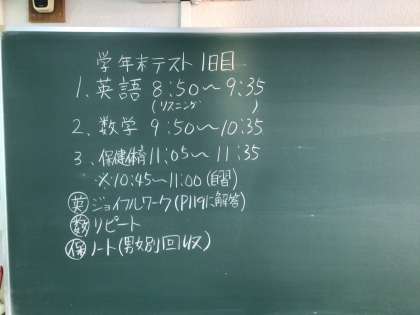 学年末テスト 1日目
1、英語 8:50〜9:35
(リスニング )
2、数学 9:50〜10:35
3、保健体育 11:05〜11:35
※10:45〜11:00(自習)
英 ジョイフルワーク(P119に解答)
数 リピート
保 ノート(男女別回収)